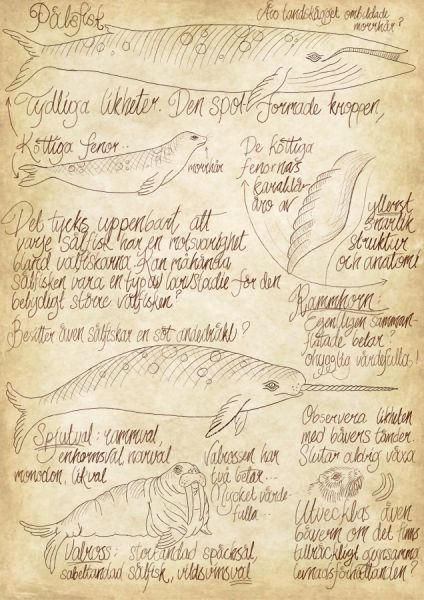 Pälsfisk
Äro landskägget ombildade
morrhår?
Tydliga likheter. Den spol formade kroppen,
Köttiga fenor...
morrhår
De köttiga
fenornas
karaktär
äro av
ytterst
snarlik
struktur
och anatomi
Det tycks uppenbart att
varje sälfisk har en motsvarighet
bland valfiskarna. Kan måhända
sälfisken vara en typ av larvstadie för den
betydligt större valfisken?
Besitter även sälfiskar en söt andedräkt?
Rammhorn:
Egentligen samman-
flätade betar?
ohyggligt värdefulla!
Spjutval: rammval,
enhornsval, narval
monodon, likval
Valrossen har
två betar...
Mycket värde-
fulla...
Observera likheten
med bävers tänder.
Slutar aldrig växa
Utvecklas även
bävern om det finns
tillräckligt gynsamma
levnadsförhållanden?
Valross: stortandad späcksäl,
sabeltandad sälfisk, vildsvinsval